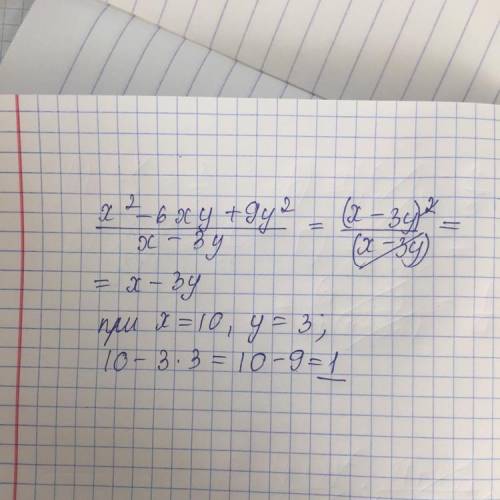 x² - 6xy + 9y² / x - 3y = (x - 3y)² / (x - 3y) =
= x - 3y
при x = 10, y = 3;
10 - 3 · 3 = 10 - 9 = 1